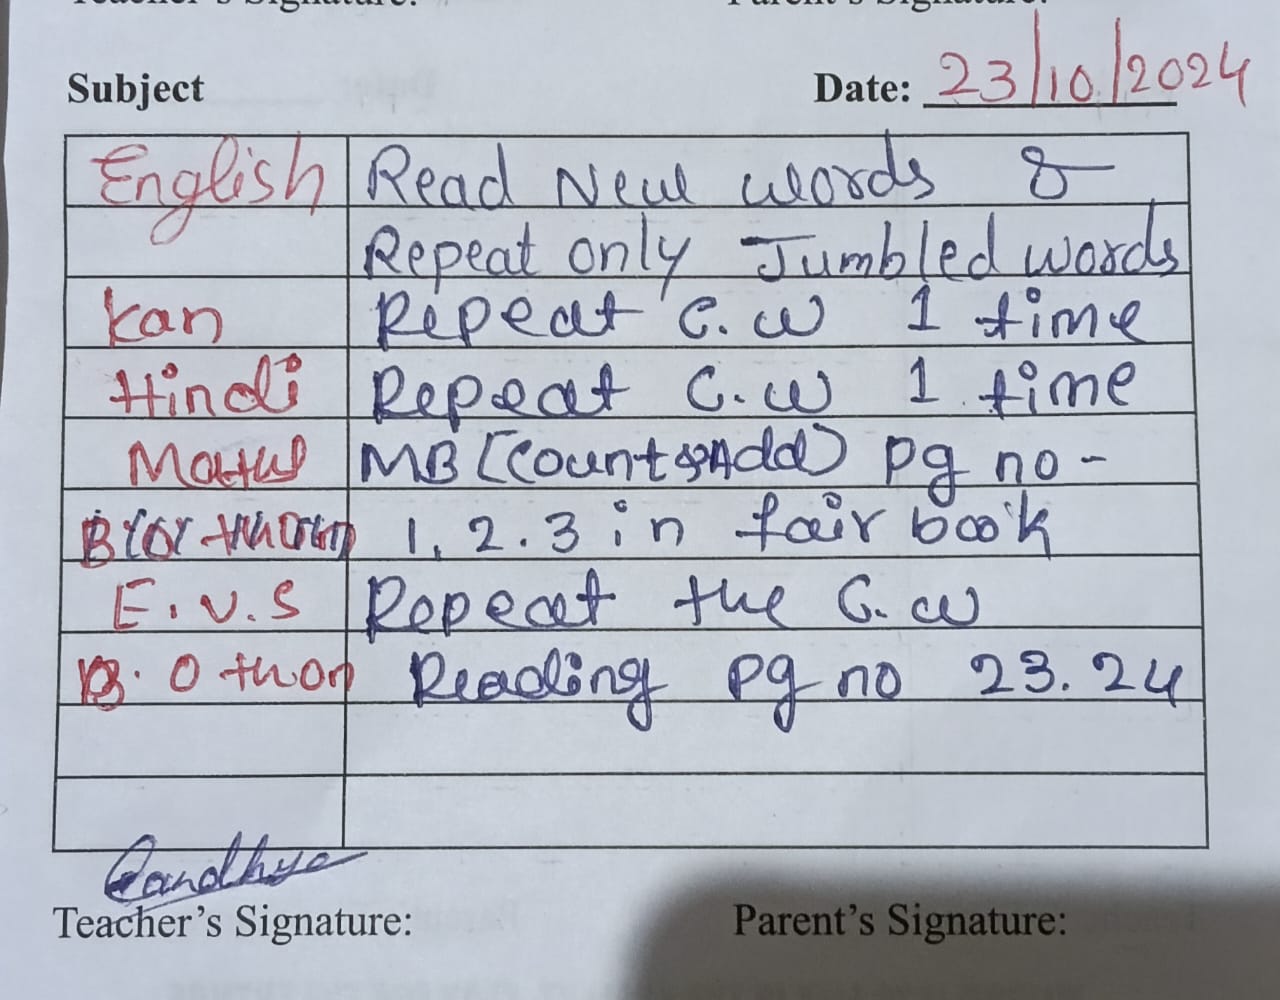 Teacher's Signature: Parent's Signature:
Subject Date: 23/10/2024
English Read New words &
Repeat only Jumbled words
Kan Repeat C.w 1 time
Hindi Repeat C.w 1 time
Maths MB [Count & Add) pg no -
1, 2. 3 in fair book
E.V.S Repeat the C.w
B.O thon Reading pg no 23. 24
Sandhya
Teacher's Signature: Parent's Signature: